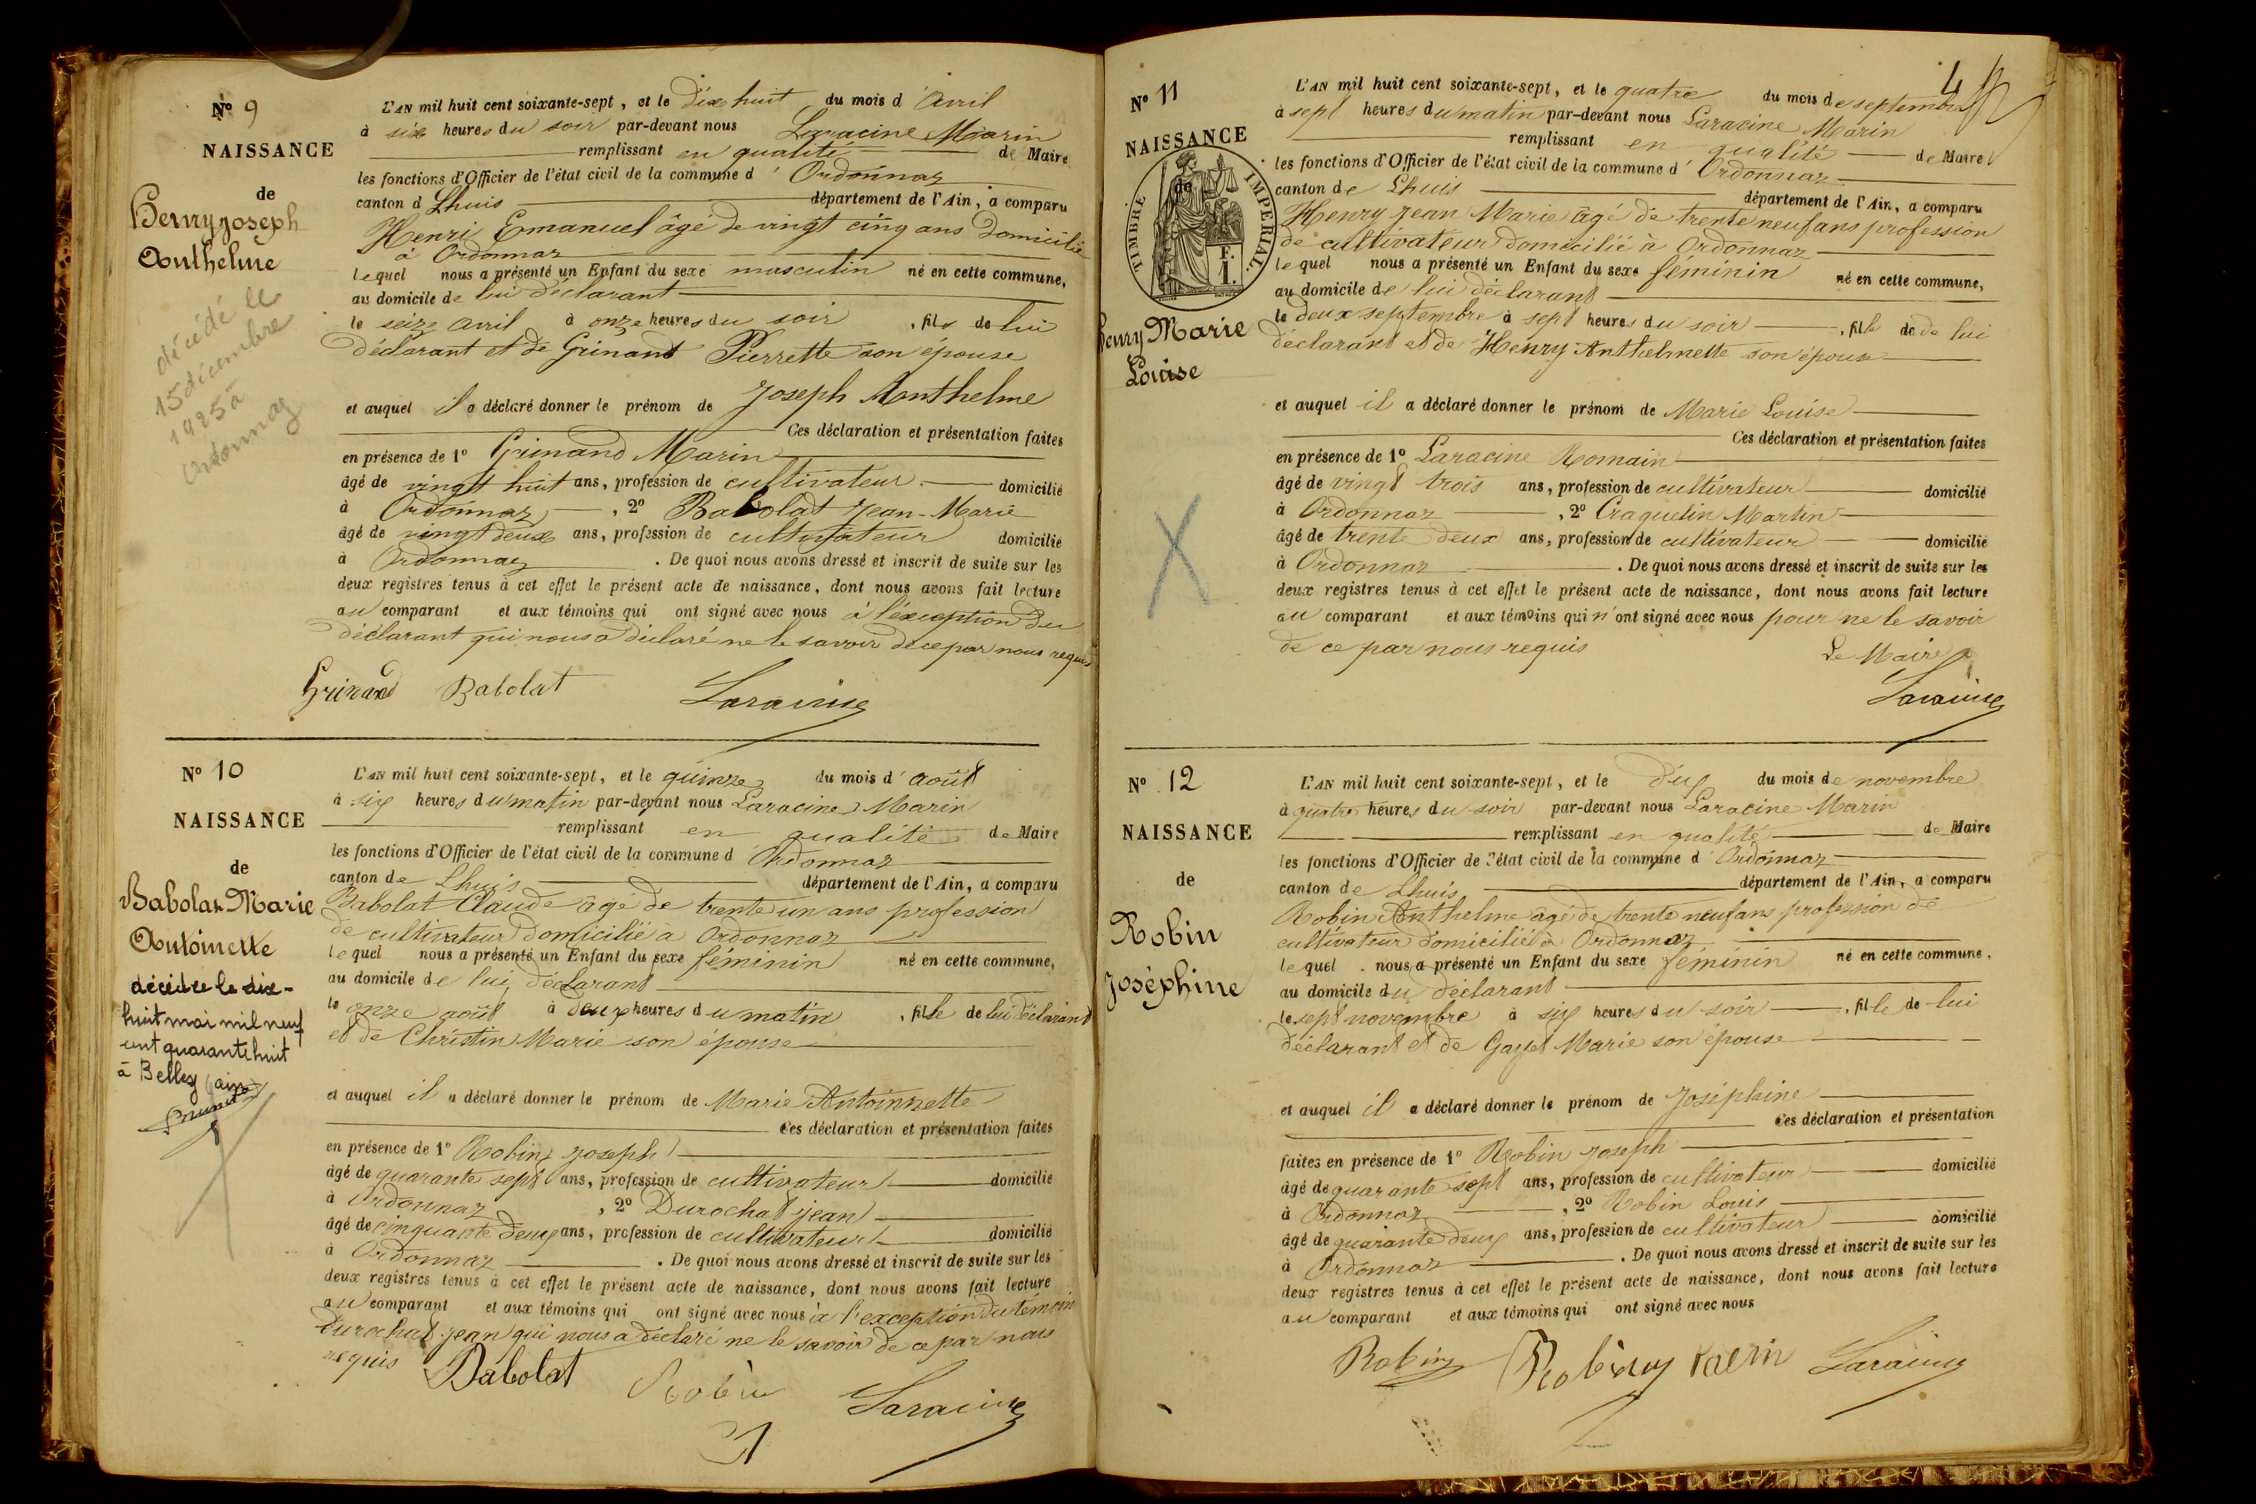 Nº 9
NAISSANCE
de
Henry Joseph
Anthelme
décédé le
15 décembre
1925 à
Ordonnaz
L'AN mil huit cent soixante-sept, et le dix huit du mois d'Avril
à six heures du soir par-devant nous Laracine Marin
remplissant en qualité de Maire
les fonctions d'Officier de l'état civil de la commune d'Ordonnaz
canton d Lhuis département de l'Ain, a comparu
Henri Emanuel âgé de vingt cinq ans domicilié
à Ordonnaz
lequel nous a présenté un Enfant du sexe masculin né en cette commune,
au domicile de lui déclarant
le seize avril à onze heures du soir, fils de lui
déclarant et de Grinand Pierrette son épouse
et auquel il a déclaré donner le prénom de Joseph Anthelme
Ces déclaration et présentation faites
en présence de 1º Grinand Marin
âgé de vingt huit ans, profession de cultivateur domicilié
à Ordonnaz, 2º Babolat Jean-Marie
âgé de vingt deux ans, profession de cultivateur domicilié
à Ordonnaz. De quoi nous avons dressé et inscrit de suite sur les
deux registres tenus à cet effet le présent acte de naissance, dont nous avons fait lecture
au comparant et aux témoins qui ont signé avec nous à l'éxception du
déclarant qui nous a déclaré ne le savoir de ce par nous requis
Grinand Babolat Laracine
Nº 10
NAISSANCE
de
Babolat Marie
Antoinette
décédée le dix-
huit mai mil neuf
cent quarante huit
à Belley (ain)
L'AN mil huit cent soixante-sept, et le quinze du mois d'août
à six heures du matin par-devant nous Laracine Marin
remplissant en qualité de Maire
les fonctions d'Officier de l'état civil de la commune d Ordonnaz
canton de Lhuis département de l'Ain, a comparu
Babolat Claude âgé de trente un ans profession
de cultivateur domicilié a Ordonnaz
lequel nous a présenté un Enfant du sexe féminin né en cette commune,
au domicile de lui déclarant
le onze août à deux heures du matin, fille de lui déclarant
et de Christin Marie son épouse
et auquel il a déclaré donner le prénom de Marie Antoinnette
Ces déclaration et présentation faites
en présence de 1º Robin Joseph
âgé de quarante sept ans, profession de cultivateur domicilié
à Ordonnaz, 2º Durochat jean
âgé de cinquante deux ans, profession de cultivateur domicilié
à Ordonnaz. De quoi nous avons dressé et inscrit de suite sur les
deux registres tenus à cet effet le présent acte de naissance, dont nous avons fait lecture
au comparant et aux témoins qui ont signé avec nous à l'exception du témoin
Durochat jean qui nous a déclaré ne le savoir de ce par nous
requis Babolat Robin Laracine
4
Nº 11
NAISSANCE
de
TIMBRE IMPERIAL.
F.
1.
Henry Marie
Louise
L'AN mil huit cent soixante-sept, et le quatre du mois de septembre
à sept heures du matin par-devant nous Laracine Marin
remplissant en qualité de Maire
les fonctions d'Officier de l'état civil de la commune d'Ordonnaz
canton de Lhuis département de l'Ain, a comparu
Henry Jean Marie âgé de trente neuf ans profession
de cultivateur domicilié à Ordonnaz
lequel nous a présenté un Enfant du sexe féminin né en cette commune,
au domicile de lui déclarant
le deux septembre à sept heures du soir, fille de de lui
déclarant et de Henry Anthelmette son épouse
et auquel il a déclaré donner le prénom de Marie Louise
Ces déclaration et présentation faites
en présence de 1º Laracine Romain
âgé de vingt trois ans, profession de cultivateur domicilié
à Ordonnaz, 2º Craquelin Martin
âgé de trente deux ans, profession de cultivateur domicilié
à Ordonnaz. De quoi nous avons dressé et inscrit de suite sur les
deux registres tenus à cet effet le présent acte de naissance, dont nous avons fait lecture
au comparant et aux témoins qui n'ont signé avec nous pour ne le savoir
de ce par nous requis Le Maire
Laracine
Nº 12
NAISSANCE
de
Robin
Joséphine
L'AN mil huit cent soixante-sept, et le dix du mois de novembre
à quatre heures du soir par-devant nous Laracine Marin
remplissant en qualité de Maire
les fonctions d'Officier de l'état civil de la commune d'Ordonnaz
canton de Lhuis département de l'Ain, a comparu
Robin Anthelme âgé de trente neuf ans profession de
cultivateur domicilié à Ordonnaz
lequel nous a présenté un Enfant du sexe féminin né en cette commune,
au domicile du déclarant
le sept novembre à six heures du soir, fille de lui
déclarant et de Gayet Marie son épouse
et auquel il a déclaré donner le prénom de Joséphine
Ces déclaration et présentation
faites en présence de 1º Robin Joseph
âgé de quarante sept ans, profession de cultivateur domicilié
à Ordonnaz, 2º Robin Louis
âgé de quarante deux ans, profession de cultivateur domicilié
à Ordonnaz. De quoi nous avons dressé et inscrit de suite sur les
deux registres tenus à cet effet le présent acte de naissance, dont nous avons fait lecture
au comparant et aux témoins qui ont signé avec nous
Robin Robin Laracine